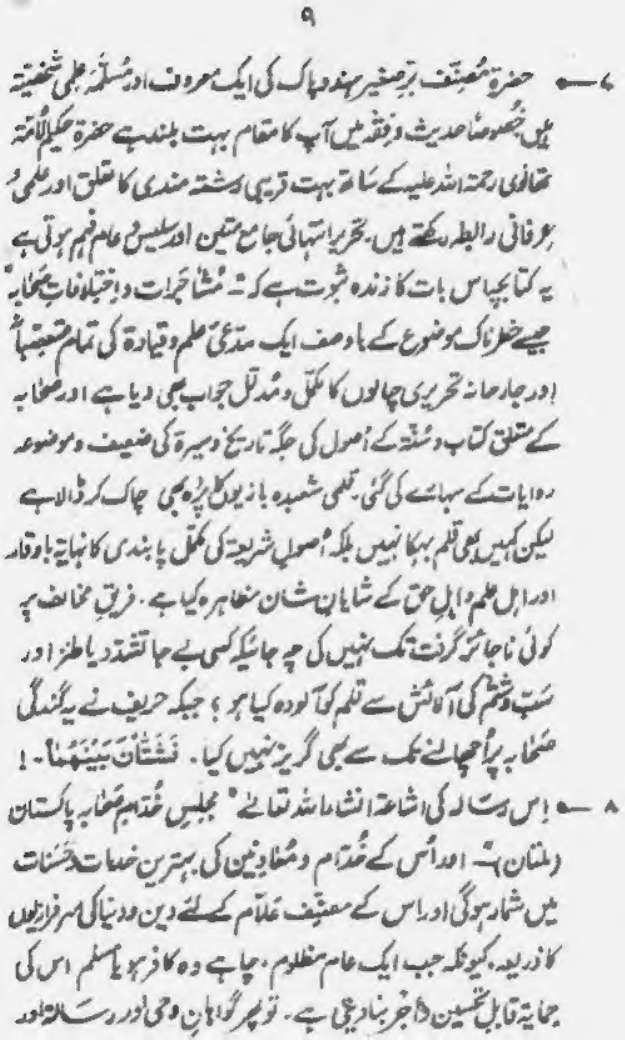 ۹
۷ — حضرۃ مُصنّف برِّصغیر ہند و پاک کی ایک معروف اور مُسلّمہ علمی شخصیّتہ
ہیں خُصوصًا حدیث و فقہ میں آپ کا مقام بہت بلند ہے حضرۃ حکیم الاُمّتہ
تھانوی رحمتہ اللہ علیہ کے ساتھ بہت قریبی رشتہ مندی کا تعلق اور علمی و
عرفانی رابطہ رکھتے ہیں۔ تحریر انتہائی جامع متین اور سلیس و عام فہم ہوتی ہے
یہ کتابچہ اس بات کا زندہ ثبوت ہے کہ " مُشاجرات و اِختلافاتِ صحابہ "
جیسے خطرناک موضوع کے باوصف ایک مدعیِٔ علم و قیادۃ کی تمام متعصّبانہ
اور جارحانہ تحریری چالوں کا مکمّل و مُدلّل جواب بھی دیا ہے اور صحابہ
کے متعلق کتاب و سُنّتہ کے اُصول کی جگہ تاریخ و سیرۃ کی ضعیف و موضوعہ
روایات کے سہارے کی گئی۔ قلمی شعبدہ بازیوں کا پردہ بھی چاک کر ڈالا ہے
لیکن کہیں بھی قلم بہکا نہیں بلکہ اُصولِ شریعتہ کی مکمّل پابندی کا نہایتہ باوقار
اور اہل علم و اہلِ حق کے شایانِ شان مظاہرہ کیا ہے۔ فریقِ مخالف پر
کوئی ناجائز گرفت تک نہیں کی چہ جائیکہ کسی بے جا تشدّد یا طنز اور
سَبّ و شتم کی آلائش سے قلم کو آلودہ کیا ہو ؛ جبکہ حریف نے یہ گندگی
صحابہ پر اُچھالنے تک سے بھی گریز نہیں کیا۔ فَشَتَّانَ بَیْنَهُمَا۔!
۸ — اِس رسالہ کی اشاعۃ انشاء اللہ تعالےٰ " مجلسِ خُدّامِ صحابہ پاکستان
(ملتان) " اور اُس کے خُدّام و مُعاونین کی بہترین خدمات و حَسَنات
میں شمار ہوگی اور اس کے مصنّف علّام کے لئے دین و دنیا کی سرفرازیوں
کا ذریعہ۔ کیونکہ جب ایک عام مظلوم، چاہے وہ کافر ہو یا مسلم اس کی
حمایۃ قابلِ تحسین و اجر بنا دیتی ہے۔ تو پھر گواہانِ وحی اور رسالۃ اور